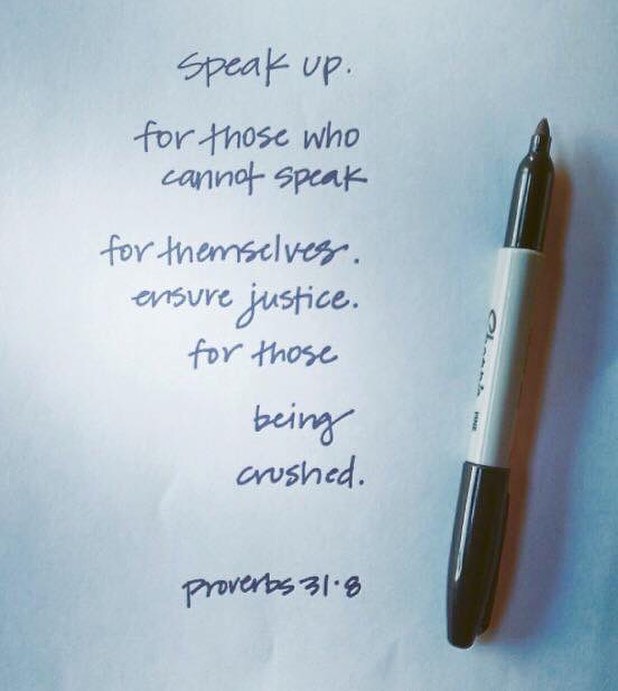 speak up.
for those who
cannot speak
for themselves.
ensure justice.
for those
being
crushed.
proverbs 31:8
Sharpie
FINE